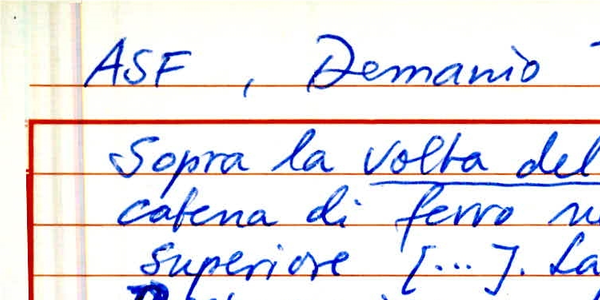 ASF, Demanio
Sopra la volta del
catena di ferro
superiore [...]. La